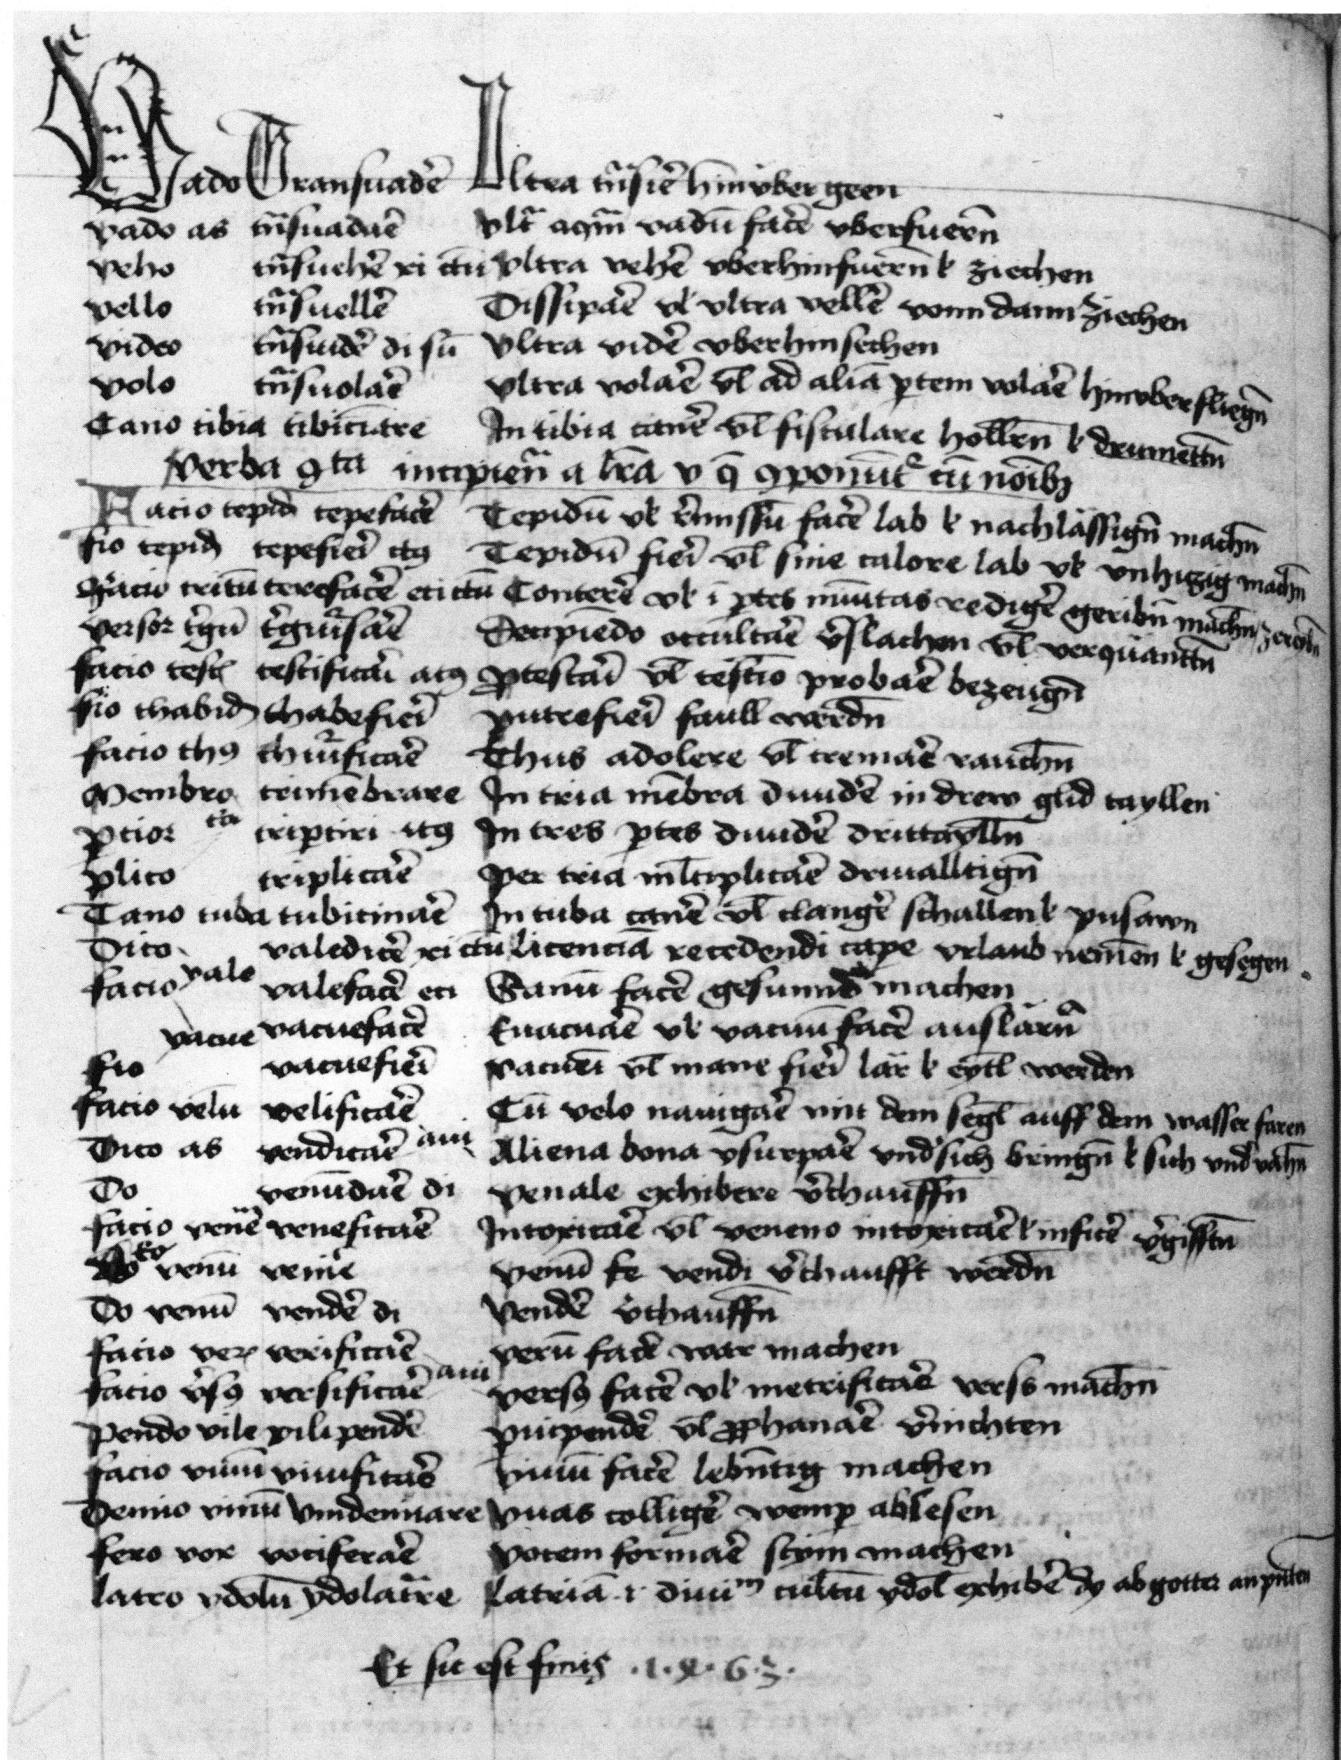 Vado Transuadē Ultra trāsirē hinvber geen
vado as trāsuadaē vltra aquā vadū facē vberfuern̄
veho trāsuehē xi ctū vltra vehē vberhinfuern̄ ł ziechen
vello trāsuellē Dissipaē vł vltra vellē vonn dann ziechen
video trāsuidē di sū vltra vidē vberhin sechen
volo trāsuolaē vltra volaē vl̄ ad aliā ꝑtem volaē hinvber fliegn̄
Cano tibia tibicīare In tibia canē vl̄ fistulare hollern̄ ł drumettn̄
Verba ꝯta incipien̄ a lr̄a v q̄ ꝯponūt᷑ cū nōibꝫ
Facio tepid᷑ tepefacē Tepidū vł remissū facē lab ł nachlässign̄ machn̄
fio tepid᷑ tepefierī ctꝰ Tepidū fierī vl̄ sine calore lab vł vnhiczig machn̄
facio tritū terefacē eci ctū Conterē vł ī ꝑtes minutas redigē geribn̄ machn̄
versor t̄gū t̄giu̅saē Decipiēdo occultaē v̄slachen vl̄ verquanttn̄
facio test᷑ testificarī atꝰ ꝓtestarī vl̄ testīo probaē bezeugn̄
fio thabid᷑ thabefierī putrefierī faull werdn̄
facio thꝰ thurificaē Thus adolere vl̄ cremaē rauchn̄
Membro trimēbrare In tria mēbra diuidē in drew glid tayllen
ꝑtior tria triꝑtiri itꝰ In tres ꝑtes diuidē drittaylln̄
plico triplicaē Per tria ml̄tiplicaē driualltign̄
Cano tuba tubicinaē In tuba canē vl̄ clangē schallen ł pusawn
Dico valedicē xi ctū licenciā recedendi cape vrlaub nemen ł gesegen
facio vale valefacē eci Sanū facē gesunnd machen
vacue vacuefacē Euacuaē vł vacuū facē auslärn̄
fio vacuefierī vacueī vl̄ inane fierī lär ł eytl werden
facio velū velificaē Cū velo nauigaē mit dem segl auff dem wasser faren
Dico as vendicaē aui Aliena bona vsurpaē vnd᷑ sich bringn̄ ł sich vnd᷑ vahn̄
Do venūdaē di venale exhibere v̄chauffn̄
facio venē veneficaē Intoxicaē vl̄ veneno intoxicaē ł inficē v̄gifftn̄
Eo venū venirē venū ire vendi v̄chaufft werdn̄
Do venū vendē di vendē v̄chauffn̄
facio ver᷑ verificaē verū facē war machen
facio v̄sꝰ versificaē aui versꝰ facē vł metrificaē verss machn̄
Pendo vile vilipendē vilipendē vl̄ ꝓphanaē v̄nichten
facio viuū viuificaē viuū facē lebn̄tig machen
Demio vinū vindemiare vuas colligē weinp̄ ablesen
fero vox vociferaē vocem formaē stym machen
latro ydolū ydolatr̄e Latriā .i. diuin̄ cultū ydol̄ exhibē dy abgotter an peten
Et sic est finis .1.4.6.3.